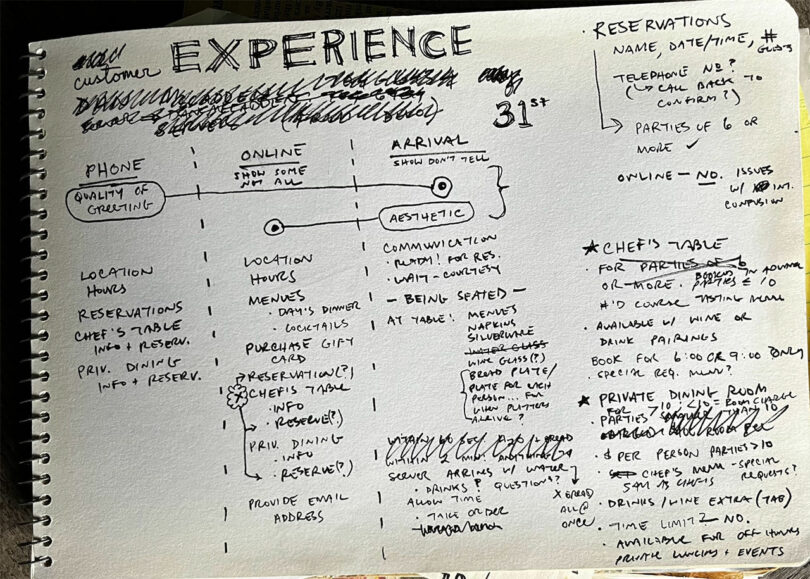 customer EXPERIENCE
31ST
PHONE
QUALITY OF
GREETING
LOCATION
HOURS
RESERVATIONS
CHEF'S TABLE
INFO + RESERV.
PRIV. DINING
INFO + RESERV.
ONLINE
SHOW SOME
NOT ALL
LOCATION
HOURS
MENUES
• DAY'S DINNER
• COCKTAILS
PURCHASE GIFT
CARD
RESERVATION(?)
CHEF'S TABLE
• INFO
• RESERVE(?)
PRIV. DINING
• INFO
• RESERVE(?)
PROVIDE EMAIL
ADDRESS
ARRIVAL
SHOW DON'T TELL
AESTHETIC
COMMUNICATION
• READY! FOR RES.
• WAIT - COURTESY
— BEING SEATED —
AT TABLE: MENUES
NAPKINS
SILVERWARE
WATER GLASS
WINE GLASS(?)
BREAD PLATE/
PLATE FOR EACH
PERSON... FOR
WHEN PLATTERS
ARRIVE?
SERVER ARRIVES W/ WATER
• DRINKS? QUESTIONS?
ALLOW TIME
• TAKE ORDER
X BREAD
ALL @
ONCE
• RESERVATIONS
NAME, DATE/TIME, # GUESTS
TELEPHONE NO?
(↳ CALL BACK TO
CONFIRM?)
→ PARTIES OF 6 OR
MORE ✓
ONLINE – NO. ISSUES
W/ INT.
CONFUSION
★ CHEF'S TABLE
• FOR PARTIES OF 6
OR MORE. BOOKED IN ADVANCE
PARTIES ≤ 10
#'D COURSE TASTING MENU
• AVAILABLE W/ WINE OR
DRINK PAIRINGS
BOOK FOR 6:00 OR 9:00 ONLY
• SPECIAL REQ. MENU?
★ PRIVATE DINING ROOM
FOR >10; <10 = ROOM CHARGE
• PARTIES THAN 10
• $ PER PERSON PARTIES >10
CHEF'S MENU - SPECIAL
SAM AS CHEFS REQUESTS?
• DRINKS/WINE EXTRA (TAB)
• TIME LIMIT? – NO.
• AVAILABLE FOR OFF HOURS
PRIVATE LUNCHES + EVENTS